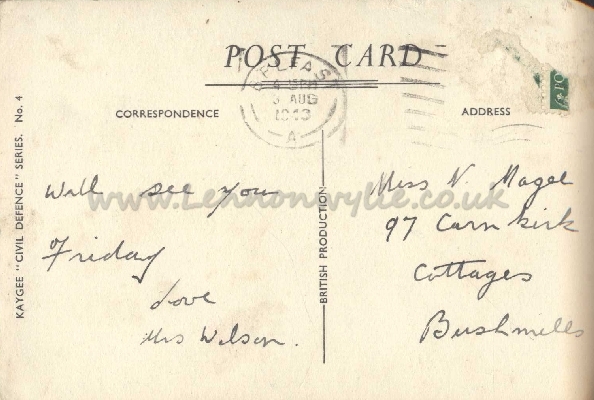 POST CARD
BELFAST
4 15 PM
3 AUG
A
CORRESPONDENCE
ADDRESS
KAYGEE "CIVIL DEFENCE" SERIES. No. 4
BRITISH PRODUCTION
www.Lennonwylie.co.uk
Will see you
Friday
Love
Mrs Wilson.
Miss N. Magee
97 Carnkirk
Cottages
Bushmills